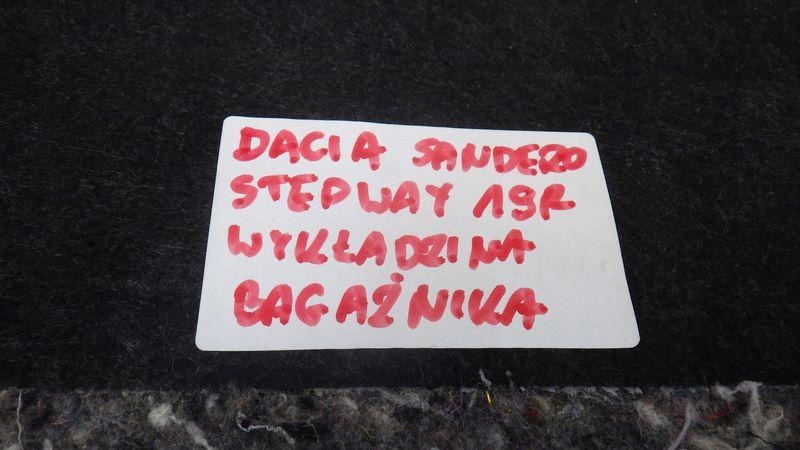 DACIA SANDERO
STEPWAY 19R
WYKŁADZINA
BAGAŻNIKA